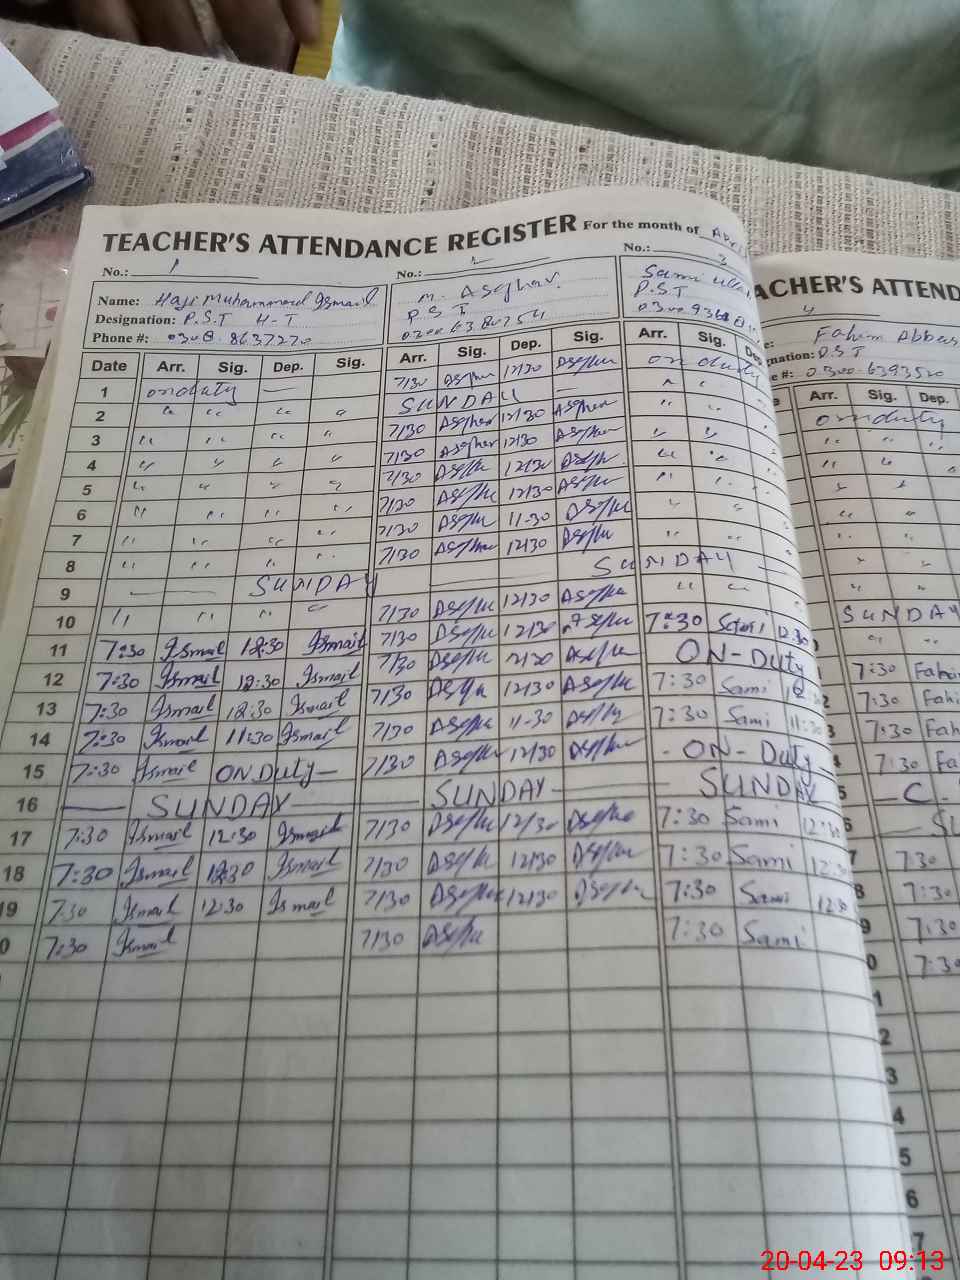 TEACHER'S ATTENDANCE REGISTER For the month of
No.: 1 No.: 2 No.: 3
Name: Haji Muhammad Ismail
Designation: P.S.T H-T
Phone #:
M. Asghar
P.S.T
Sami
P.S.T
Date Arr. Sig. Dep. Sig. Arr. Sig. Dep. Sig. Arr. Sig.
1 onduty — 7/30 Asghar 12/30 Asghar onduty
2 " " " " SUNDAY — " "
3 " " " " 7/30 Asghar 12/30 Asghar " "
4 " " " " 7/30 Asghar 12/30 Asghar " "
5 " " " " 7/30 Asghar 12/30 Asghar " "
6 " " " " 7/30 Asghar 12/30 Asghar " "
7 " " " " 7/30 Asghar 11-30 Asghar " "
8 " " " " 7/30 Asghar 12/30 Asghar " "
9 — SUNDAY — — SUNDAY —
10 " " " " 7/30 Asghar 12/30 Asghar " "
11 7:30 Ismail 12:30 Ismail 7/30 Asghar 12/30 Asghar 7:30 Sami 12:30
12 7:30 Ismail 12:30 Ismail 7/30 Asghar 12/30 Asghar ON-Duty
13 7:30 Ismail 12:30 Ismail 7/30 Asghar 12/30 Asghar 7:30 Sami
14 7:30 Ismail 11:30 Ismail 7/30 Asghar 11-30 Asghar 7:30 Sami 11:30
15 7:30 Ismail ON Duty — 7/30 Asghar 12/30 Asghar - ON-Duty —
16 — SUNDAY — — SUNDAY — — SUNDAY
17 7:30 Ismail 12:30 Ismail 7/30 Asghar 12/30 Asghar 7:30 Sami 12:30
18 7:30 Ismail 12:30 Ismail 7/30 Asghar 12/30 Asghar 7:30 Sami 12:30
19 7:30 Ismail 12:30 Ismail 7/30 Asghar 12/30 Asghar 7:30 Sami 12:30
0 7:30 Ismail 7/30 Asghar 7:30 Sami
ACHER'S ATTEND
4
Fahim Abbas
nation: P.S.T
e #: 0300-6393520
Arr. Sig. Dep.
onduty
" " "
" "
" "
" "
" "
" "
SUNDAY
" "
7:30 Fahi
2 7:30 Fahi
3 7:30 Fah
4 7:30 Fa
5 — C.
6 — SU
7 7:30
8 7:30
9 7:30
0 7:30
1
2
3
4
5
6
7
20-04-23 09:13